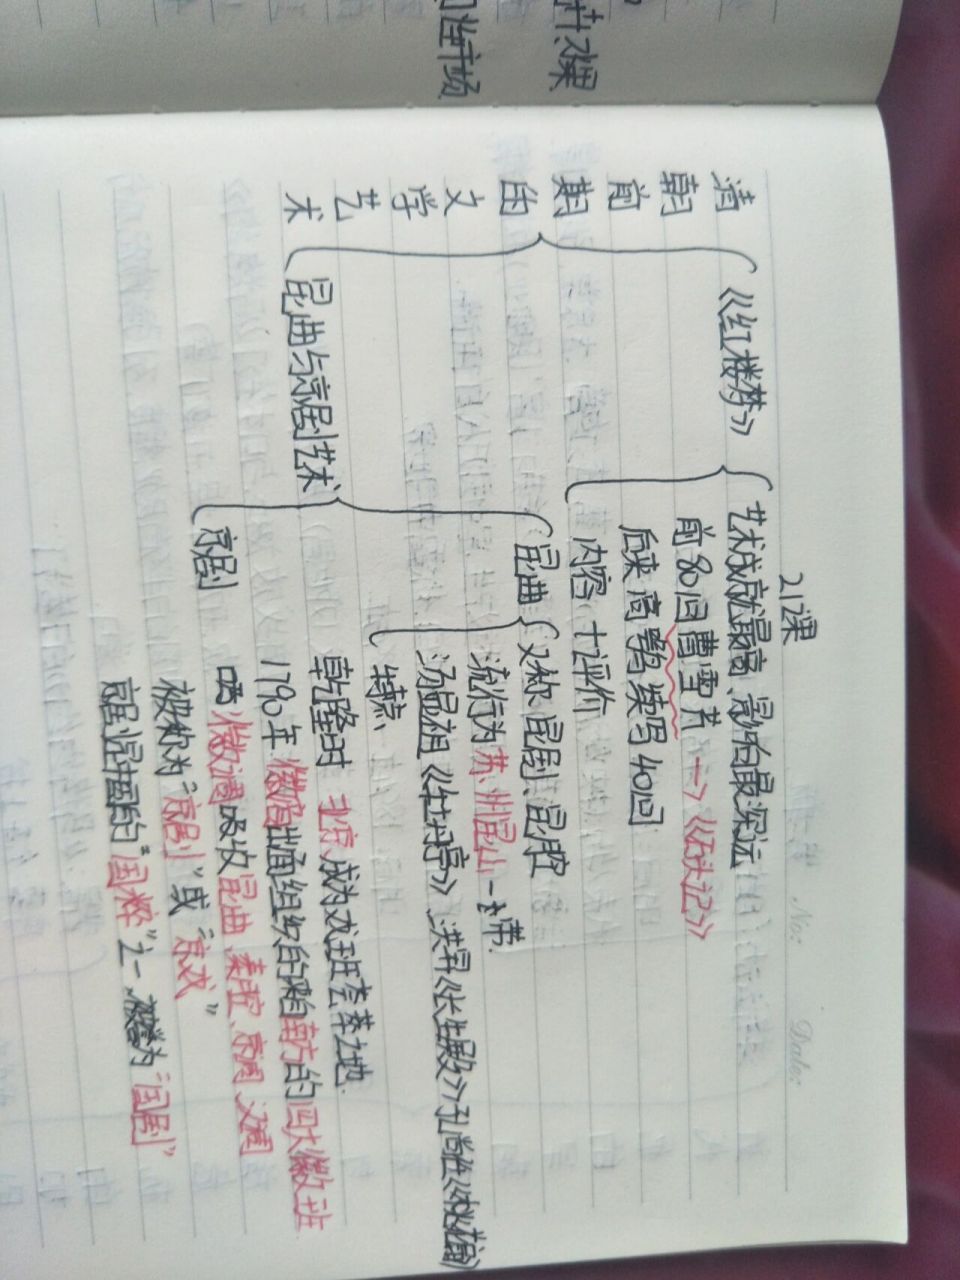 村、课
21课
No:
Date:
清朝前期的文学艺术
《红楼梦》
艺术成就最高、影响最深远
前80回曹雪芹→《石头记》
后来高鹗续写40回
内容 十评价
昆曲与京剧艺术
昆曲
又称昆剧、昆腔
流行为苏州昆山一带.
汤显祖《牡丹亭》洪昇《长生殿》孔尚任《桃花扇》
特点、
京剧
乾隆时 北京成为戏班荟萃之地.
1790年 徽商出面组织的来自南方的四大徽班
唱徽调吸收昆曲、秦腔、京调、汉调
被称为“京剧”或“京戏”
京剧是中国的“国粹”之一、被誉为“国剧”